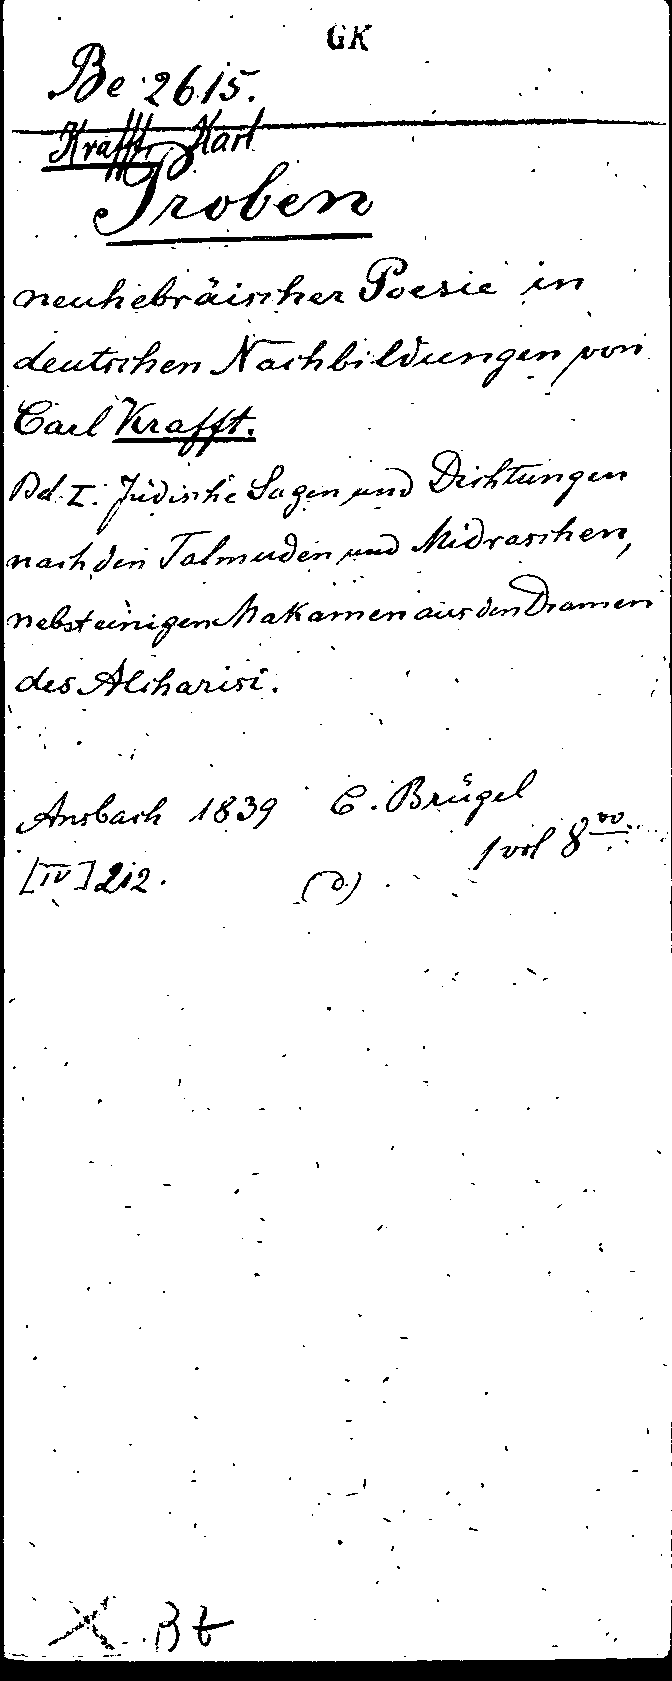 GK
Be 2615.
Krafft, Karl
Proben
neuhebräischer Poesie in
deutschen Nachbildungen von
Carl Krafft.
Bd. I. Jüdische Sagen und Dichtungen
nach den Talmuden und Midraschen,
nebst einigen Makamen aus den Dramen
des Alcharisi.
Ansbach 1839 C. Brügel
1 vol 8vo.
[IV] 212. (d.)
X. Bt